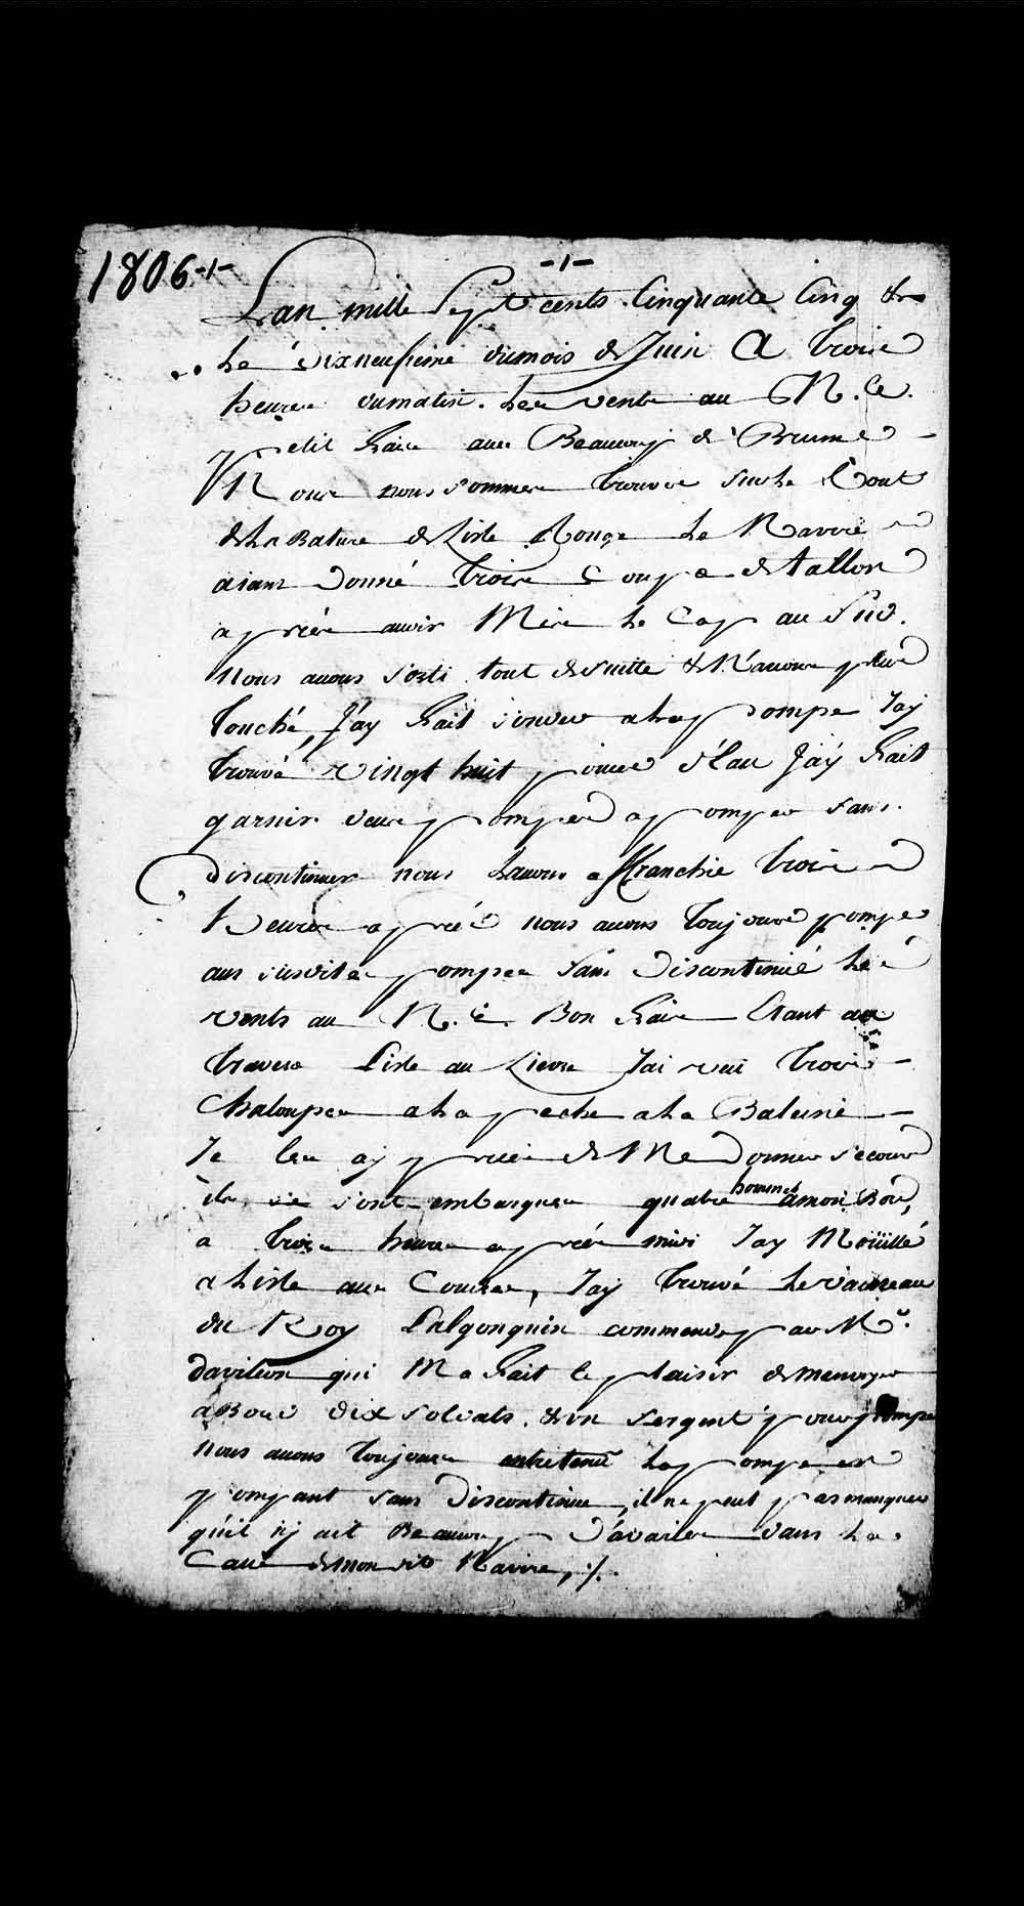 1806-1-
-1-
Lan mille Sept cents Cinquante Cinq &
Le dixneufieme dumois de Juin A trois
heures dumatin. Les vents au N.E.
petit frais avec Beaucoup de Brume
Nous nous sommes trouvés sur le bout
de la Bature de Lisle Rouge Le Navire
aiant donné trois Coups de tallon
apprès avoir Mis le Cap au Sud.
nous avons sorti tout desuitte & N'avons plus
touché, J'ay fait sonder alapompe Jay
trouvé vingt huit pouces d'Eau J'ay fait
garnir deux pompes a pomper sans
discontinuer nous Lavons affranchie trois
heures apprés nous avons toujours pompé
aux susdites pompes sans Discontinué Les
vents au N.E. Bon frais Etant au
travers Lisle au Lievre Jai vue trois
Chaloupes a la peche a la Baleine
Je les ay priée de Me Donner secours
ils se sont embarquer quatre hommes amon Bord,
a trois heures apprés midi Jay Moüillé
a Lisle aux Coudres, Jay trouvé le vaisseau
du Roy Lalgonquin commendé par Mr.
qui Ma fait le plaisir de menvoyer
a Bord dix soldats & un sergent pour pomper
nous avons toujours entretenu la pompe en
pompant sans Discontinue, il ne peut pas manquer
quil nj ait Beaucoup D'avaries dans la
Calle de mon dit Navire, ./.